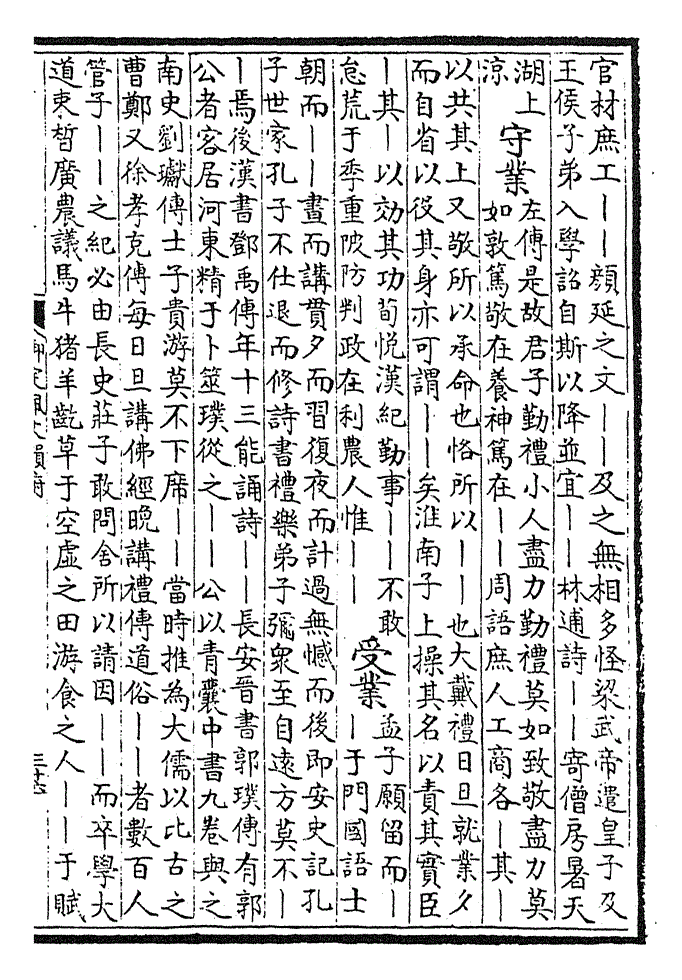 官材庶工｜｜顔延之文｜｜及之無相多怪梁武帝遣皇子及
王侯子弟入學詔自斯以降並宜｜｜林逋詩｜｜寄僧房暑天
湖上
凉
守業
左傳是故君子勤禮小人盡力勤禮莫如致敬盡力莫
如敦篤敬在養神篤在｜｜周語庶人工商各｜其｜
以共其上又敬所以承命也恪所以｜｜也大戴禮日旦就業夕
而自省以役其身亦可謂｜｜矣淮南子上操其名以責其實臣
｜其｜以効其功荀悦漢紀勤事｜｜不敢
怠荒于季重陂防判政在利農人惟｜｜
受業
孟子願留而｜
｜于門國語士
朝而｜｜晝而講貫夕而習復夜而計過無憾而後即安史記孔
子世家孔子不仕退而修詩書禮樂弟子彌衆至自遠方莫不｜
｜焉後漢書鄧禹傳年十三能誦詩｜｜長安晉書郭璞傳有郭
公者客居河東精于卜筮璞從之｜｜公以青囊中書九卷與之
南史劉瓛傳士子貴游莫不下席｜｜當時推為大儒以比古之
曹鄭又徐孝克傳每日旦講佛經晚講禮傳道俗｜｜者數百人
管子｜｜之紀必由長史莊子敢問舍所以請因｜｜而卒學大
道束晳廣農議馬牛猪羊齕草于空虛之田游食之人｜｜于賦
御定佩文韻府